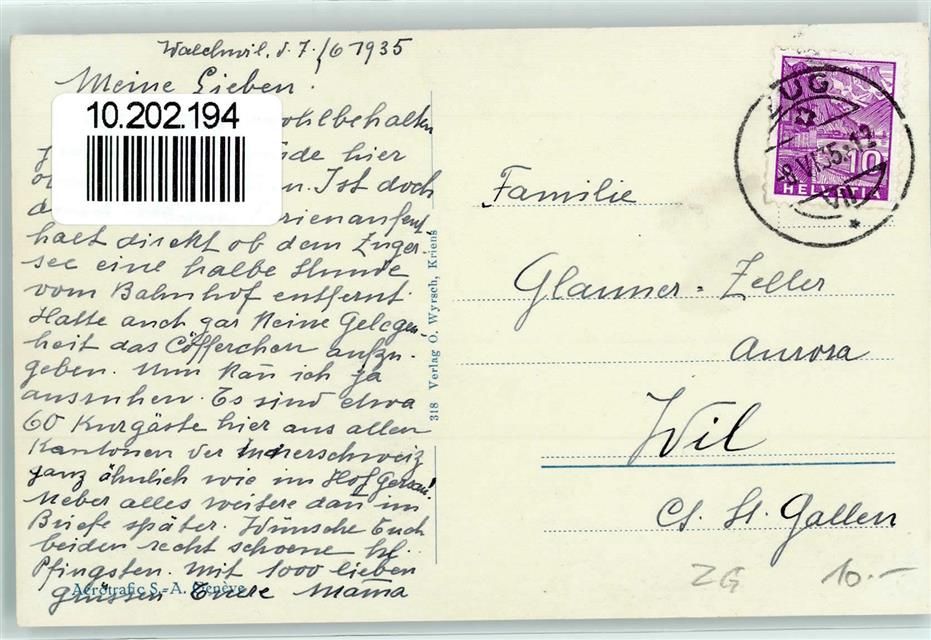 Walchwil, d. 7./6 1935
Meine Lieben.
10.202.194
ohlbehalten
hier
en. Ist doch
rienaufent
halt direkt ob dem Zuger-
see eine halbe Stunde
vom Bahnhof entfernt.
Hatte auch gar keine Gelegen-
heit das Cöfferchen aufzu-
geben. Nun kan ich ja
ausruhen. Es sind etwa
60 Kurgäste hier aus allen
Kantonen der Innerschweiz
ganz ähnlich wie im Hof Gersau!
Ueber alles weitere dan im
Briefe später. Wünsche Euch
beiden recht schoene hl.
Pfingsten. Mit 1000 lieben
grüssen Euere Mama
Aérotrafic S.-A. Genève
318 Verlag O. Wyrsch, Kriens
ZUG
8.VI.35.-12
10
HELVETIA
Familie
Glauner-Zeller
Aurora
Wil
Ct. St. Gallen
ZG 10.--